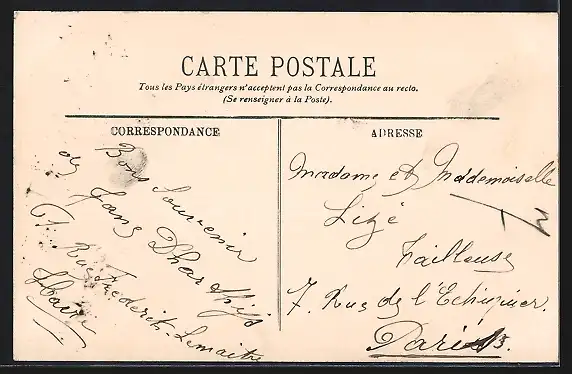 CARTE POSTALE
Tous les Pays étrangers n'acceptent pas la Correspondance au recto.
(Se renseigner à la Poste).
CORRESPONDANCE
Bons Souvenir
de Jane
Rue Frederick-Lemaitre
ADRESSE
Madame et Mademoiselle
Lizé
Tailleuse
7. Rue de l'Echiquier.
Paris